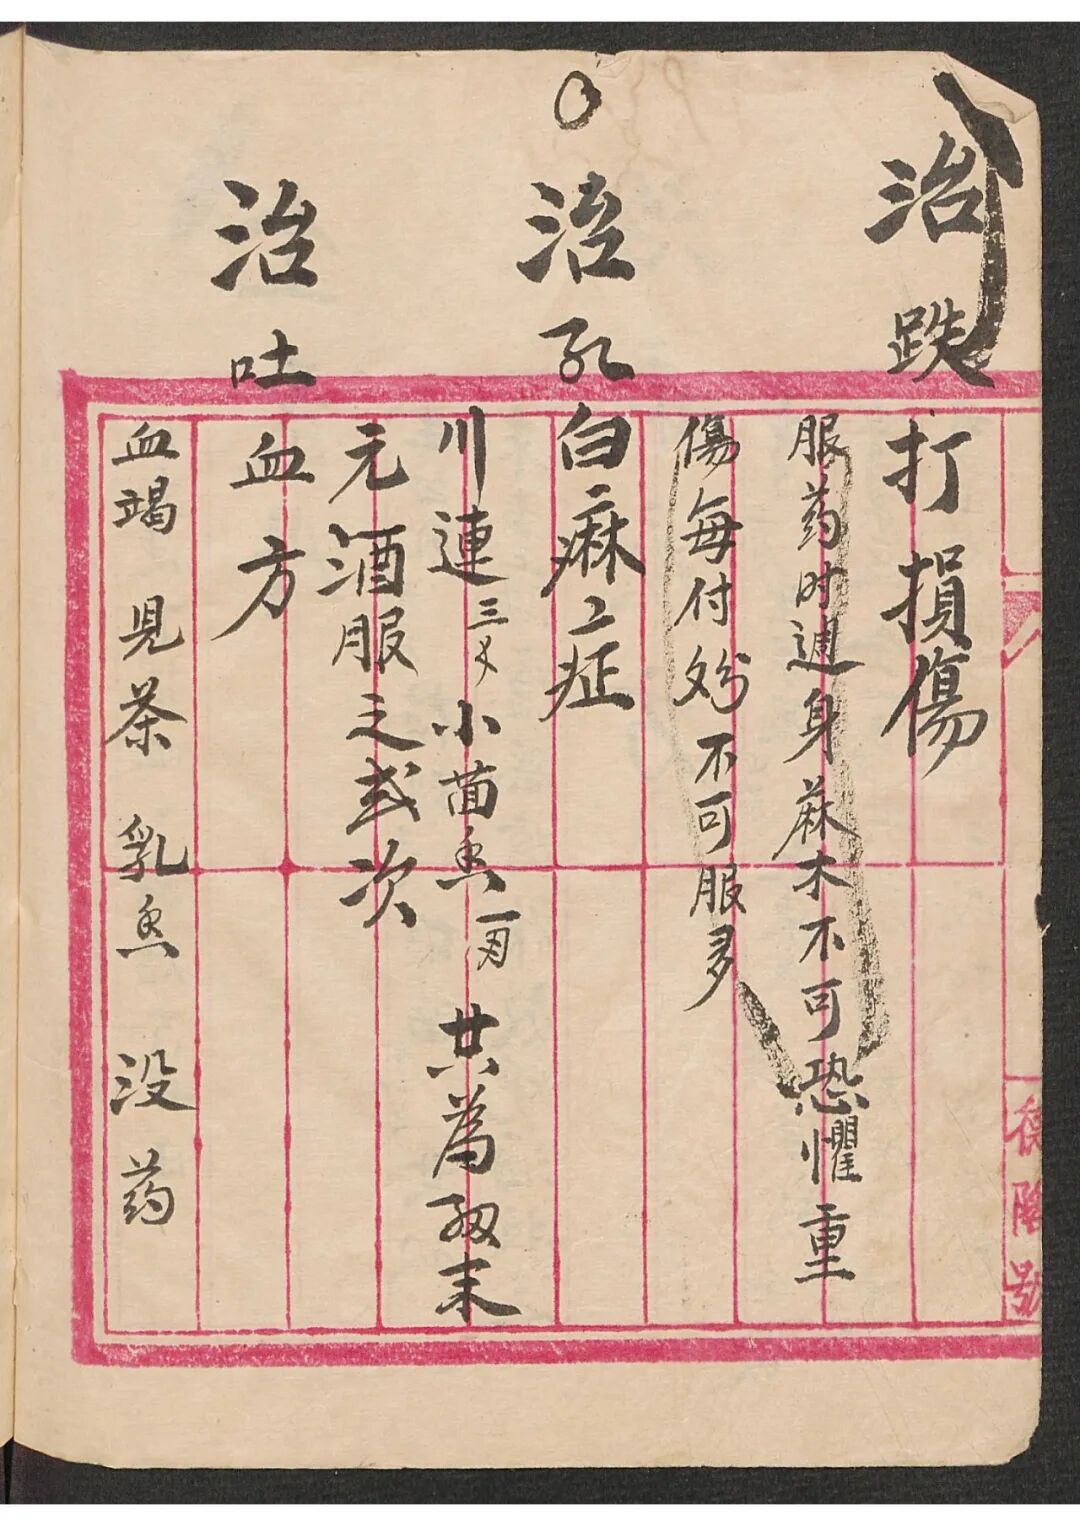 治跌打損傷
服药时週身蔴木不可恐懼重
傷每付分不可服多
治孔白痳〻症
川連三錢小茴香一两共為細末
元酒服之弍次
治吐血方
血竭 見茶 乳香 没药
德隆號